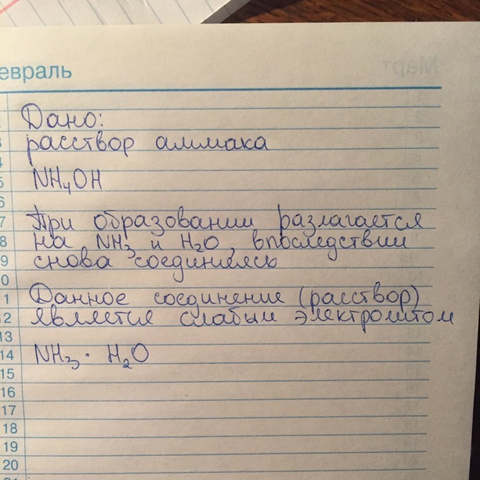 евраль
Март
Дано:
расствор аммака
NH₄OH
При образовании разлагается
на NH₃ и H₂O, впоследствии
снова соединяясь
Данное соединение (расствор)
является слабым электролитом
NH₃ · H₂O
13
14
15
16
17
18
19
20